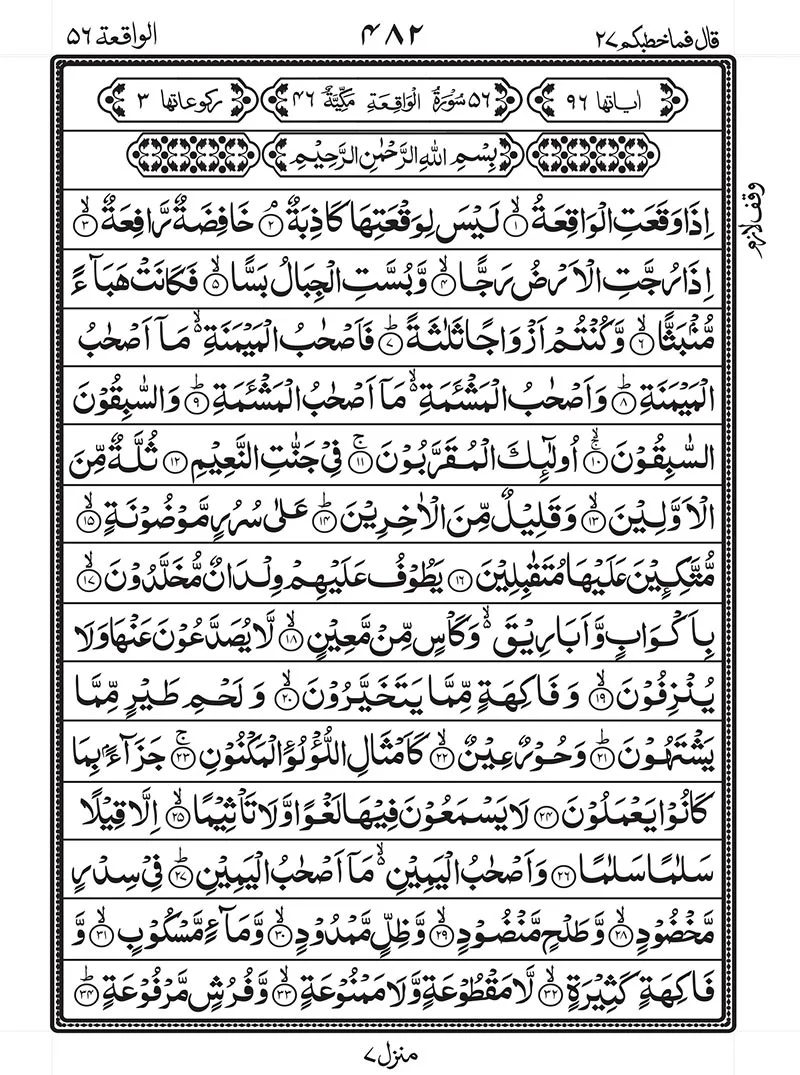 قال فماخطبکم ۲۷
۴۸۲
الواقعة ۵۶
اٰیاتها ۹۶
۵۶ سُوْرَةُ الْوَاقِعَةِ مَكِّیَّةٌ ۴۶
رکوعاتها ۳
بِسْمِ اللّٰهِ الرَّحْمٰنِ الرَّحِیْمِ
وقف لازم
اِذَا وَقَعَتِ الْوَاقِعَةُ ۙ﴿۱﴾ لَیْسَ لِوَقْعَتِهَا كَاذِبَةٌ ۘ﴿۲﴾ خَافِضَةٌ رَّافِعَةٌ ۙ﴿۳﴾
اِذَا رُجَّتِ الْاَرْضُ رَجًّا ۙ﴿۴﴾ وَّ بُسَّتِ الْجِبَالُ بَسًّا ۙ﴿۵﴾ فَكَانَتْ هَبَآءً
مُّنْۢبَثًّا ۙ﴿۶﴾ وَّ كُنْتُمْ اَزْوَاجًا ثَلٰثَةً ؕ﴿۷﴾ فَاَصْحٰبُ الْمَیْمَنَةِ ۙ۬ مَاۤ اَصْحٰبُ
الْمَیْمَنَةِ ؕ﴿۸﴾ وَ اَصْحٰبُ الْمَشْـَٔمَةِ ۙ۬ مَاۤ اَصْحٰبُ الْمَشْـَٔمَةِ ؕ﴿۹﴾ وَ السّٰبِقُوْنَ
السّٰبِقُوْنَ ۚۙ﴿۱۰﴾ اُولٰٓىِٕكَ الْمُقَرَّبُوْنَ ۚ﴿۱۱﴾ فِیْ جَنّٰتِ النَّعِیْمِ ﴿۱۲﴾ ثُلَّةٌ مِّنَ
الْاَوَّلِیْنَ ۙ﴿۱۳﴾ وَ قَلِیْلٌ مِّنَ الْاٰخِرِیْنَ ؕ﴿۱۴﴾ عَلٰى سُرُرٍ مَّوْضُوْنَةٍ ۙ﴿۱۵﴾
مُّتَّكِـِٕیْنَ عَلَیْهَا مُتَقٰبِلِیْنَ ﴿۱۶﴾ یَطُوْفُ عَلَیْهِمْ وِلْدَانٌ مُّخَلَّدُوْنَ ۙ﴿۱۷﴾
بِاَكْوَابٍ وَّ اَبَارِیْقَ ۙ۬ وَ كَاْسٍ مِّنْ مَّعِیْنٍ ۙ﴿۱۸﴾ لَّا یُصَدَّعُوْنَ عَنْهَا وَ لَا
یُنْزِفُوْنَ ۙ﴿۱۹﴾ وَ فَاكِهَةٍ مِّمَّا یَتَخَیَّرُوْنَ ۙ﴿۲۰﴾ وَ لَحْمِ طَیْرٍ مِّمَّا
یَشْتَهُوْنَ ؕ﴿۲۱﴾ وَ حُوْرٌ عِیْنٌ ۙ﴿۲۲﴾ كَاَمْثَالِ اللُّؤْلُؤِ الْمَكْنُوْنِ ۚ﴿۲۳﴾ جَزَآءًۢ بِمَا
كَانُوْا یَعْمَلُوْنَ ﴿۲۴﴾ لَا یَسْمَعُوْنَ فِیْهَا لَغْوًا وَّ لَا تَاْثِیْمًا ۙ﴿۲۵﴾ اِلَّا قِیْلًا
سَلٰمًا سَلٰمًا ﴿۲۶﴾ وَ اَصْحٰبُ الْیَمِیْنِ ۙ۬ مَاۤ اَصْحٰبُ الْیَمِیْنِ ؕ﴿۲۷﴾ فِیْ سِدْرٍ
مَّخْضُوْدٍ ۙ﴿۲۸﴾ وَّ طَلْحٍ مَّنْضُوْدٍ ۙ﴿۲۹﴾ وَّ ظِلٍّ مَّمْدُوْدٍ ۙ﴿۳۰﴾ وَّ مَآءٍ مَّسْكُوْبٍ ۙ﴿۳۱﴾ وَّ
فَاكِهَةٍ كَثِیْرَةٍ ۙ﴿۳۲﴾ لَّا مَقْطُوْعَةٍ وَّ لَا مَمْنُوْعَةٍ ۙ﴿۳۳﴾ وَّ فُرُشٍ مَّرْفُوْعَةٍ ؕ﴿۳۴﴾
منزل ۷